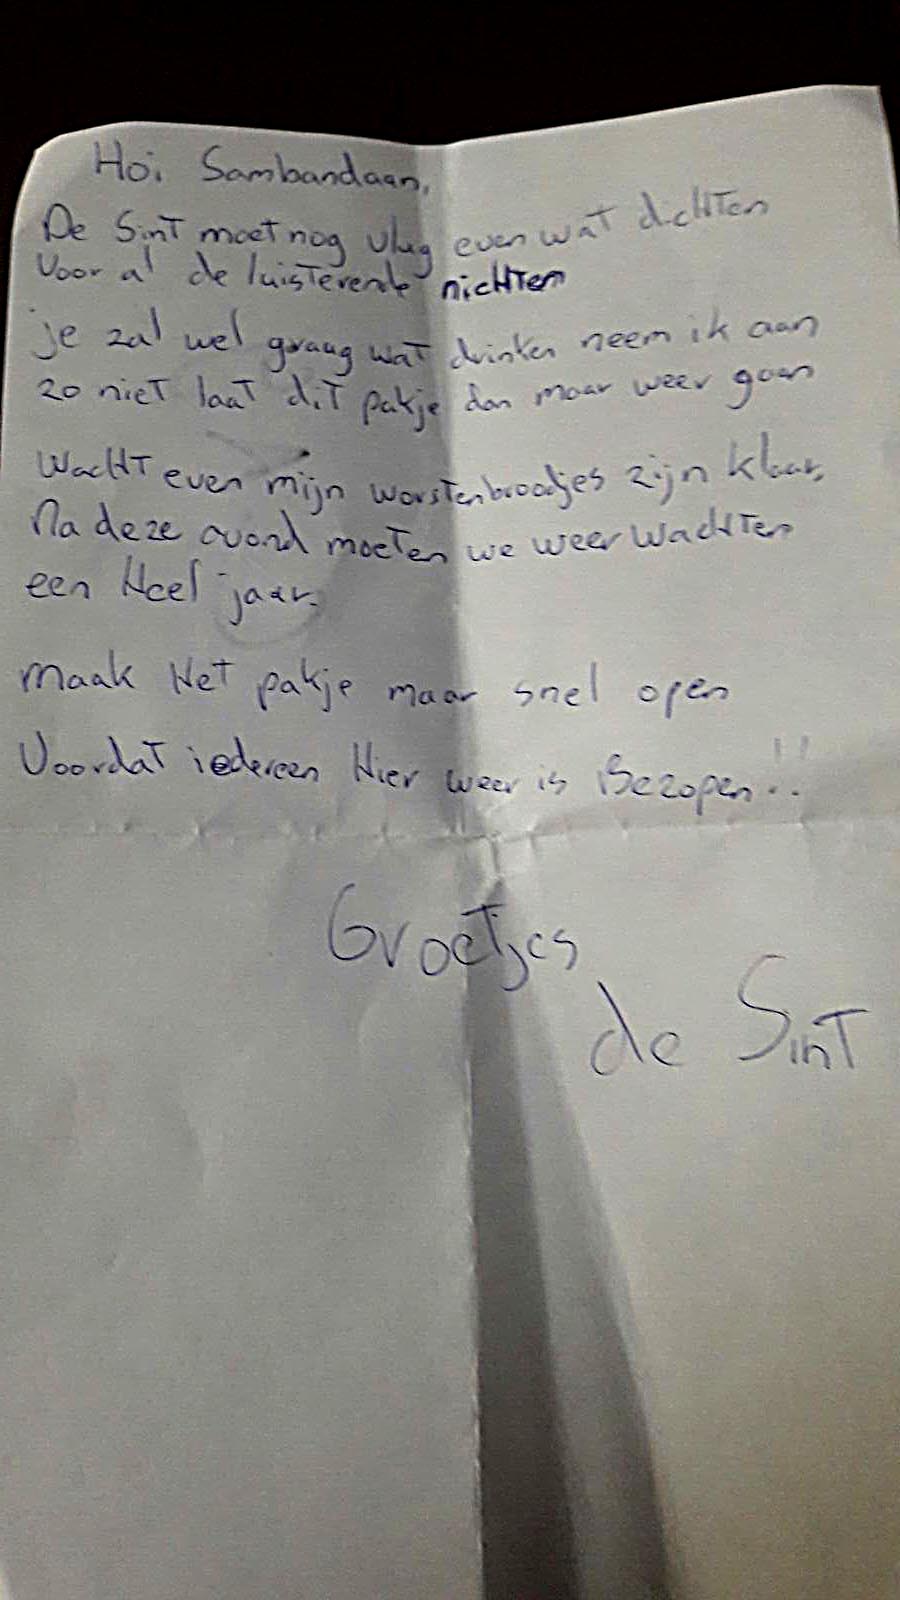 Hoi Sambandaan,
De Sint moet nog vlug even wat dichten
Voor al de luisterende nichten
je zal wel graag wat drinken neem ik aan
zo niet laat dit pakje dan maar weer gaan
Wacht even mijn worstenbroodjes zijn klaar,
Na deze avond moeten we weer wachten
een Heel jaar.
maak Het pakje maar snel open
Voordat iedereen Hier weer is Bezopen!!
Groetjes
de Sint